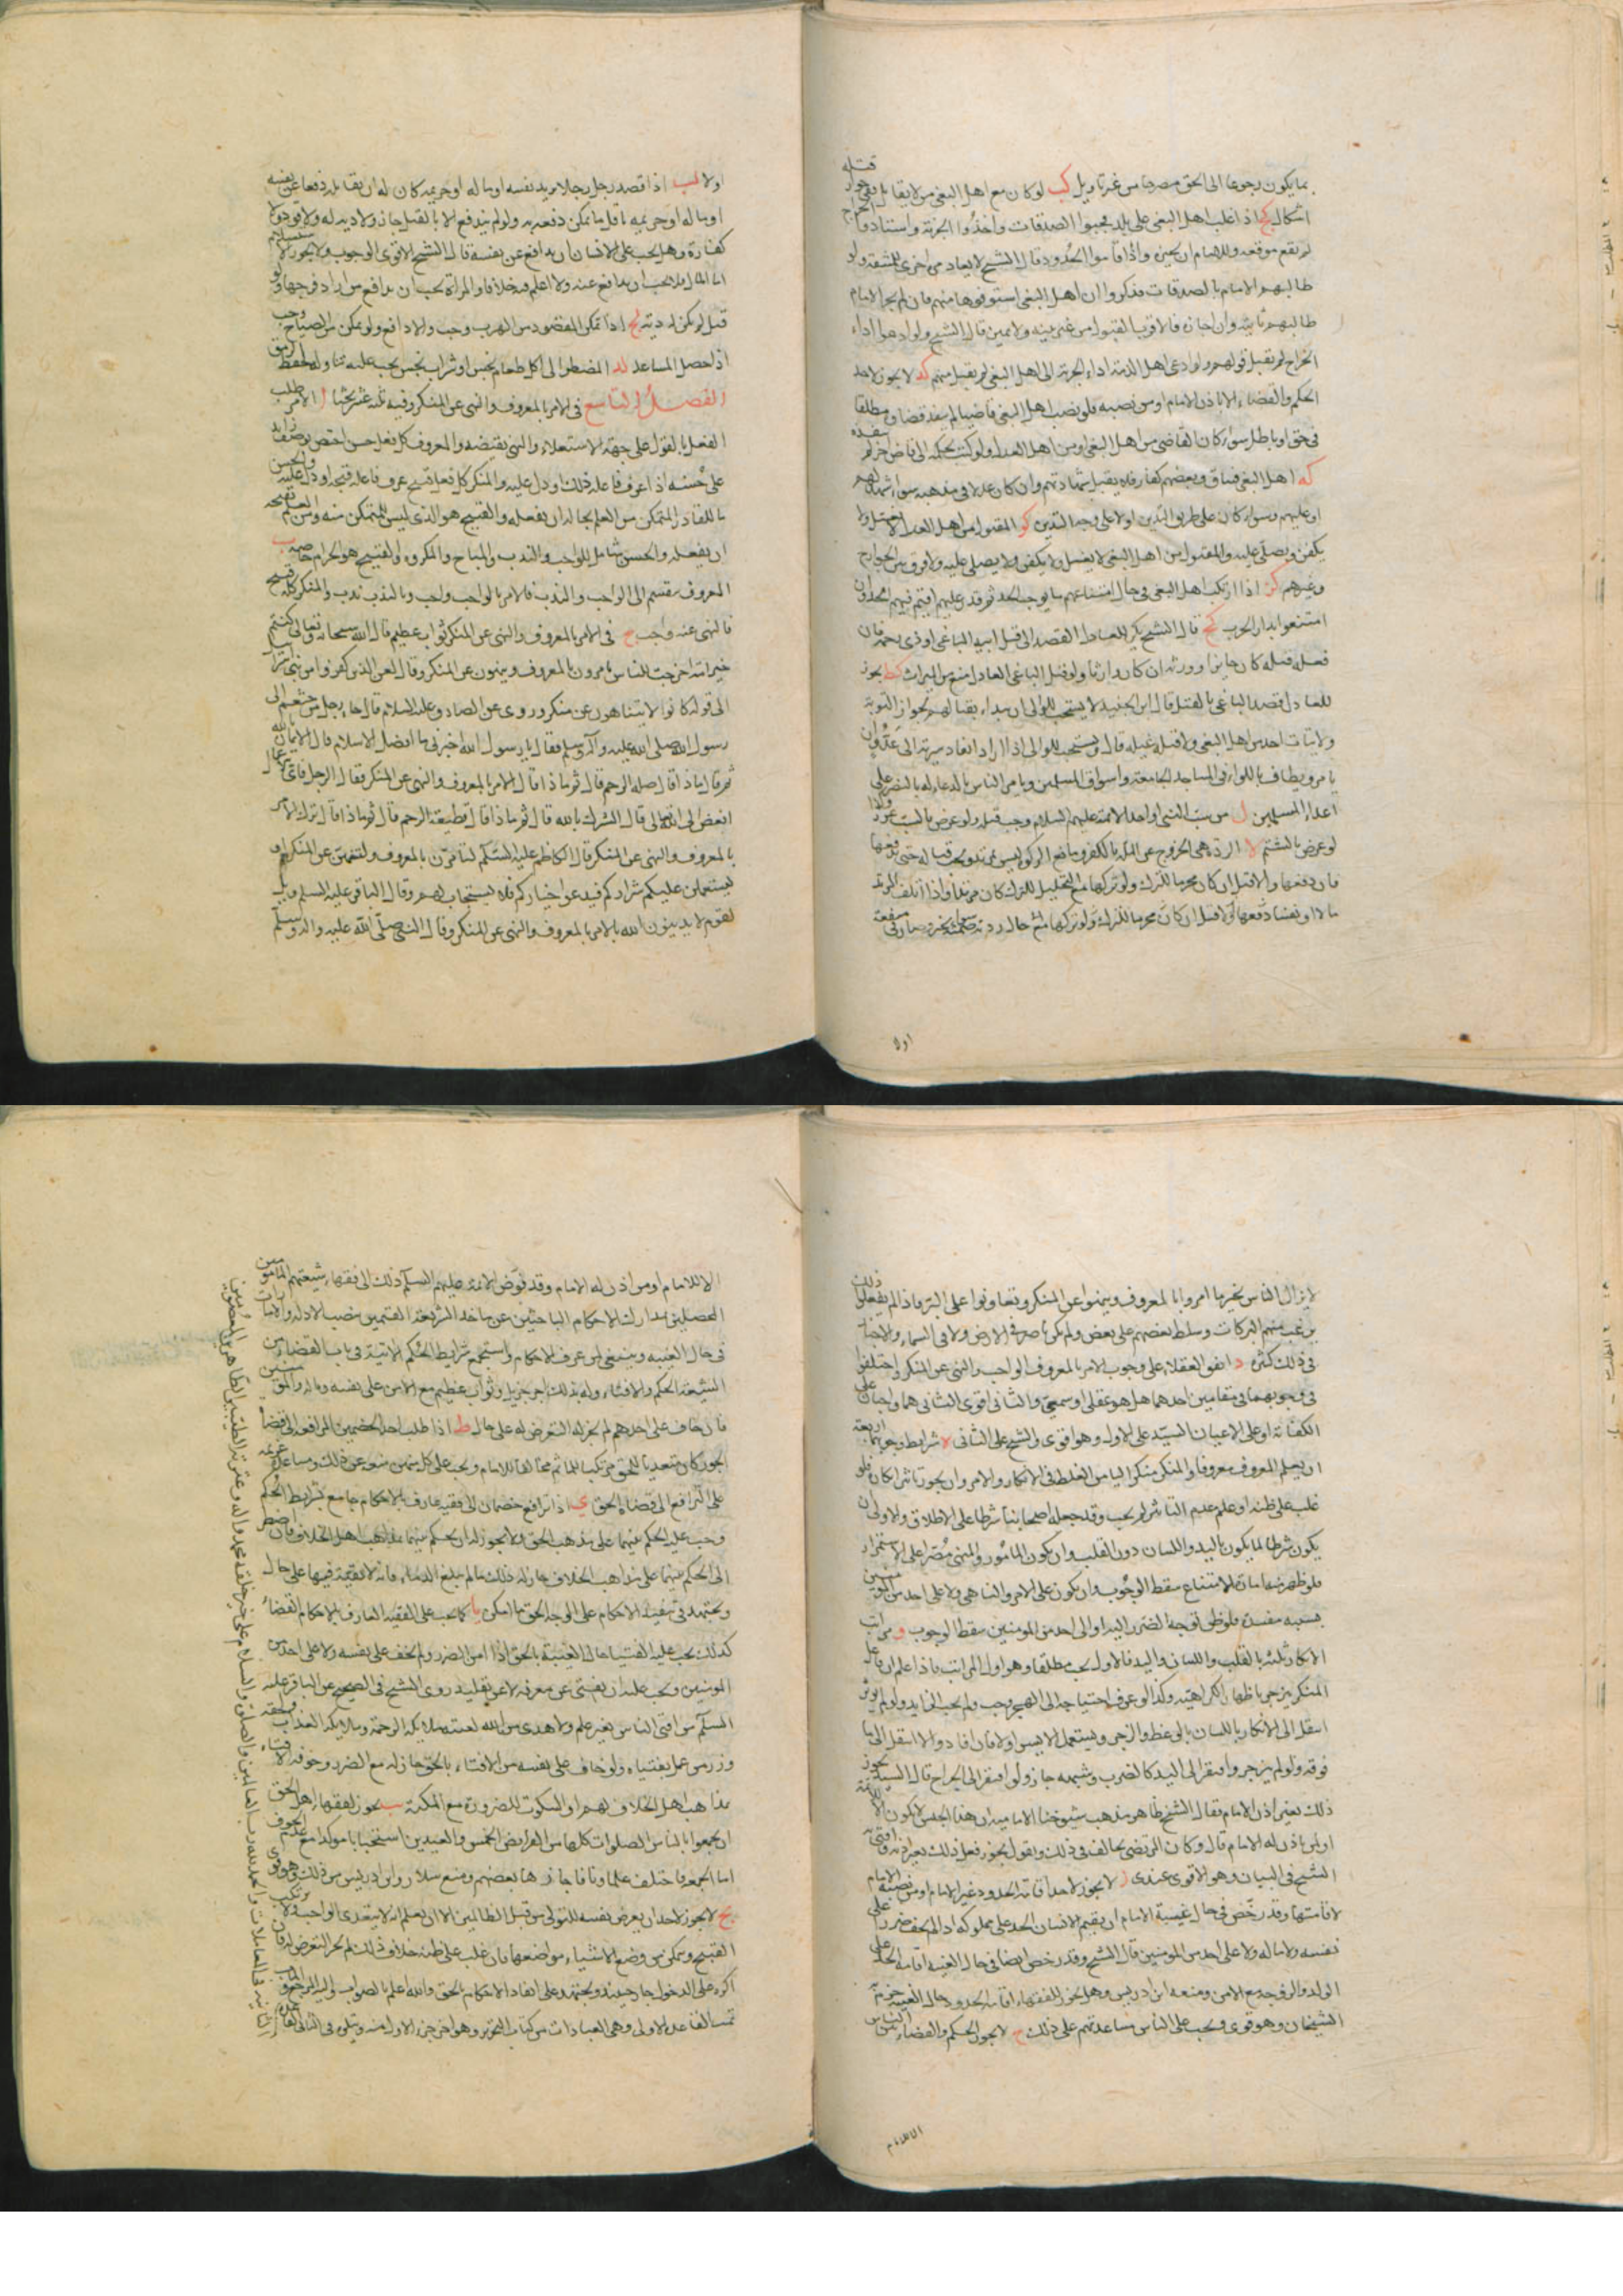 بما يكون رجوعا الى الحق مصرحا من غير تاويل كب لو كان مع اهل البغي من لا يقاتل ففي جواز قتله
اشكال كج اذا غلب اهل البغي على بلد فجبوا الصدقات واخذوا الجزية واستادوا الخراج
لم يقع موقعه وللامام ان يجيز واذا قاموا الحدود قال الشيخ لا يعاد مرة اخرى للمشقة ولو
طالبهم الامام بالصدقات فذكروا ان اهل البغي استوفوها منهم فان لم يجز الامام
طالبهم ثانية وان اجازه فالاقرب القبول من غير بينة ولا يمين قال الشيخ ولو ادعوا اداء
الخراج لم يقبل قولهم ولو ادعى اهل الذمة اداء الجزية الى اهل البغي لم يقبل منهم كد لا يجوز لاحد
الحكم والقضاء الا باذن الامام او من نصبه فلو نصب اهل البغي قاضيا لم ينفذ قضاؤه مطلقا
في حق او باطل سواء كان القاضي من اهل البغي او من اهل العدل ولو كتب بحكمه الى قاض اخر لم ينفذه
كه اهل البغي فساق وبعضهم كفار فلا يقبل شهادتهم وان كان عدلا في مذهبه سواء شهد لهم
او عليهم وسواء كان على طريق التدين او لا على وجه التدين كو المقتول من اهل العدل لا يغسل ولا
يكفن ويصلى عليه والمقتول من اهل البغي لا يغسل ولا يكفن ولا يصلى عليه ولا فرق بين الخوارج
وغيرهم كز اذا ارتكب اهل البغي في حال امتناعهم ما يوجب الحد ثم قدر عليهم اقيم فيهم الحد وان
امتنعوا بدار الحرب كح قال الشيخ يكره للعادل القصد الى قتل ابيه الباغي او ذي رحمه فان
فعل قتله كان جايزا وورثه ان كان وارثا ولو قتل الباغي العادل منع من الميراث كط يجوز
للعادل قصد الباغي بالقتل قال ابن الجنيد لا يستحب للوالي ان يبداء بقتالهم لجواز التوبة
ولا يبات احد من اهل البغي ولا قتله غيلة قال ويستحب للوالي اذا اراد انفاد سرية الى عدو ان
يامر ويطاف باللواء في المساجد الجامعة واسواق المسلمين ويامر الناس بالدعاء له بالنصر على
اعداء المسلمين ل من سب النبي او احد الائمة عليهم السلام وجب قتله ولو عرض بالسب عزر وكذا
لو عرض بالشتم لا الردة هي الخروج عن الملة بالكفر ومانع الزكوة ليس بمرتد ويجب قتاله حتى يدفعها
فان دفعها والا قتل ان كان محرما للترك ولو تركها مع التحليل للترك كان مرتدا واذا اتلف المرتد
مالا او نفسا
اولا
اولا لب اذا قصد رجل رجلا يريد نفسه او ماله او حريمه كان له ان يقاتله دفعا عن نفسه
او ماله او حريمه باقل ما يمكن دفعه به ولو لم يندفع الا بالقتل جاز ولا دية له ولا قود ولا
كفارة وهل يجب على الانسان ان يدافع عن نفسه قال الشيخ الاقوى الوجوب ولا يجوز الاستسلام
اما المال فلا يجب ان يدافع عنه ولا اعلم فيه خلافا والمراة يجب ان يدافع من اراد فرجها ولو
قتل لم يكن له دية لج اذا تمكن المقصود من الهرب وجب والا دافع ولو تمكن من الصياح وجب
اذا حصل المساعد لد المضطر الى اكل طعام نجس او شراب نجس يجب عليه تناوله لحفظ الرمق
الفصل التاسع في الامر بالمعروف والنهي عن المنكر وفيه ثلثة عشر بحثا ا الامر طلب
الفعل بالقول على جهة الاستعلاء والنهي نقيضه والمعروف كل فعل حسن اختص بوصف زايد
على حسنه اذا عرف فاعله ذلك او دل عليه والمنكر كل فعل قبيح عرف فاعله قبحه او دل عليه والحسن
ما للقادر المتمكن من العلم بحاله ان يفعله والقبيح هو الذي ليس للمتمكن منه ومن العلم بقبحه
ان يفعله والحسن شامل للواجب والندب والمباح والمكروه والقبيح هو الحرام خاصة ب
المعروف ينقسم الى الواجب والندب فالامر بالواجب واجب وبالندب ندب والمنكر كله قبيح
فالنهي عنه واجب ج في الامر بالمعروف والنهي عن المنكر ثواب عظيم قال الله سبحانه وتعالى كنتم
خير امة اخرجت للناس تامرون بالمعروف وينهون عن المنكر وقال لعن الذين كفروا من بني اسرائيل
الى قوله كانوا لا يتناهون عن منكر وروى عن الصادق عليه السلام قال جاء رجل من خثعم الى
رسول الله صلى الله عليه وآله وسلم فقال يا رسول الله اخبرني ما افضل الاسلام قال الايمان بالله
ثم قال ماذا قال صلة الرحم قال ثم ماذا قال الامر بالمعروف والنهي عن المنكر فقال الرجل فاى الاعمال
ابغض الى الله تعالى قال الشرك بالله قال ثم ماذا قال قطيعة الرحم قال ثم ماذا قال ترك الامر
بالمعروف والنهي عن المنكر قال الكاظم عليه السلم لتامرن بالمعروف ولتنهن عن المنكر او
ليستعملن عليكم شراركم فيدعوا خياركم فلا يستجاب لهم وقال الباقر عليه السلم ويل
لقوم لا يدينون الله بالامر بالمعروف والنهي عن المنكر وقال النبي صلى الله عليه وآله وسلم
لا يزال الناس بخير ما امروا بالمعروف وينهوا عن المنكر وتعاونوا على البر فاذا لم يفعلوا ذلك
نزعت منهم البركات وسلط بعضهم على بعض ولم يكن ناصر في الارض ولا في السماء والاخبار
في ذلك كثيرة د اتفق العقلاء على وجوب الامر بالمعروف الواجب والنهي عن المنكر واختلفوا
في وجوبهما في مقامين احدهما هل هو عقلي او سمعي والثاني اقوى الثاني هما واجبان على
الكفاية او على الاعيان السيد على الاول وهو اقوى والشيخ على الثاني ه شرايط وجوبهما اربعة
ان يعلم المعروف معروفا والمنكر منكرا ليامن الغلط في الانكار والامر وان يجوز تاثير انكاره فلو
غلب على ظنه او علم عدم التاثير لم يجب وقد جعله اصحابنا شرطا على الاطلاق والاولى ان
يكون شرطا لما يكون باليد واللسان دون القلب وان يكون المامور والمنهي مصرا على الاستمرار
فلو ظهر منهما امارة الامتناع سقط الوجوب وان يكون على الامر والناهي ولا على احد من المؤمنين
بسببه مفسدة فلو ظن توجه الضرر اليه او الى احد من المومنين سقط الوجوب و مراتب
الانكار ثلثة بالقلب واللسان واليد فالاول يجب مطلقا وهو اول المراتب فاذا علم ان فاعل
المنكر ينزجر باظهار الكراهية وكذا لو عرف احتياجه الى الهجر وجب ولم يجب الزايد ولو لم يؤثر
انتقل الى الانكار باللسان بالوعظ والزجر ويستعمل الايسر اولا فان افاد والا انتقل الى ما
فوقه ولو لم ينزجر وافتقر الى اليد كالضرب وشبهه جاز ولو افتقر الى الجراح قال السيد يجوز
ذلك بغير اذن الامام فقال الشيخ ظاهر مذهب شيوخنا الامامية ان هذا الجنس لا يكون الا للائمة
او لمن ياذن له الامام قال وكان المرتضى يخالف في ذلك ويقول يجوز فعل ذلك بغير اذنه وافتى به
الشيخ في التبيان وهو الاقوى عندي ز لا يجوز لاحد اقامة الحدود غير الامام او من نصبه الامام
لاقامتها وقد رخص في حال غيبة الامام ان يقيم الانسان الحد على مملوكه اذا لم يخف ضررا على
نفسه ولا ماله ولا على احد من المؤمنين قال الشيخ وقد رخص ايضا في حال الغيبة اقامة الحد على
الولد والزوجة مع الامن ومنعه ابن ادريس وهل يجوز للفقهاء اقامة الحدود حال الغيبة جزم به
الشيخان وهو قوي ويجب على الناس مساعدتهم على ذلك ح لا يجوز الحكم والقضاء بين الناس
الا للامام
الا للامام او من اذن له الامام وقد فوض الائمة عليهم السلم ذلك الى فقهاء شيعتهم المامونين
المحصلين لمدارك الاحكام الباحثين عن ماخذ الشريعة القيمين بنصب الادلة والامارات
في حال الغيبة وينبغي لمن عرف الاحكام واستجمع شرايط الحكم الاتية في باب القضاء من
الشيعة الحكم والافتاء وله بذلك اجر جزيل وثواب عظيم مع الامن على نفسه وماله والمؤمنين
فان خاف على احدهم لم يجز له التعرض له على حال ط اذا طلب احد الخصمين المرافعة الى قضاة
الجور كان متعديا للحق مرتكبا للماثم مخالفا للامام ويجب على كل متمكن منعه عن ذلك ومساعدة غريمه
على الترافع الى قضاة الحق ي اذا ترافع خصمان الى فقيه عارف بالاحكام جامع لشرايط الحكم
وجب عليه الحكم بينهما على مذهب الحق ولا يجوز له ان يحكم بينهما بمذاهب اهل الخلاف فان اضطر
الى الحكم بينهما على مذاهب الخلاف جاز له ذلك ما لم يبلغ الدماء فانه لا تقية فيها على حال
ويجتهد في تنفيذ الاحكام على الوجه الحق ما امكن يا كما يجب على الفقيه العارف بالاحكام القضاء
كذلك يجب عليه الفتيا حال الغيبة بالحق اذا امن الضرر ولم يخف على نفسه ولا على احد من
المومنين ويجب عليه ان يفتي عن معرفة لا عن تقليد روى الشيخ في الصحيح عن الباقر عليه
السلم من افتى الناس بغير علم ولا هدى من الله لعنته ملائكة الرحمة وملائكة العذاب ولحقه
وزر من عمل بفتياه ولو خاف على نفسه من الافتاء بالحق جاز له مع الضرر وخوفه الافتاء
بمذاهب اهل الخلاف لهم او السكوت للضرورة مع المكنة يب يجوز لفقهاء اهل الحق
ان يجمعوا بالناس الصلوات كلها من الفرايض الخمس والعيدين استحبابا مؤكدا مع عدم الخوف
اما الجمعة فاختلف علماؤنا فاجازها بعضهم ومنع سلار وابن ادريس من ذلك وهو قوي
يج لا يجوز لاحد ان يعرض نفسه للتولي من قبل الظالمين الا ان يعلم انه لا يتعدى الواجب ولا يرتكب
القبيح ويتمكن من وضع الاشياء مواضعها فان غلب على ظنه خلاف ذلك لم يجز التعرض له فان
اكره على الدخول جاز حينئذ ويجتهد على انفاد الاحكام بالحق والله اعلم بالصواب واليه المرجع والماب
تمت القاعدة الاولى وهي العبادات من كتاب التحرير وهو اخر جزء الاول منه ويتلوه في الثاني القاعدة
الثانية في المعاملات والحمد لله رب العالمين والصلوة والسلام على خير خلقه محمد وآله وعترته الطيبين الطاهرين المعصومين